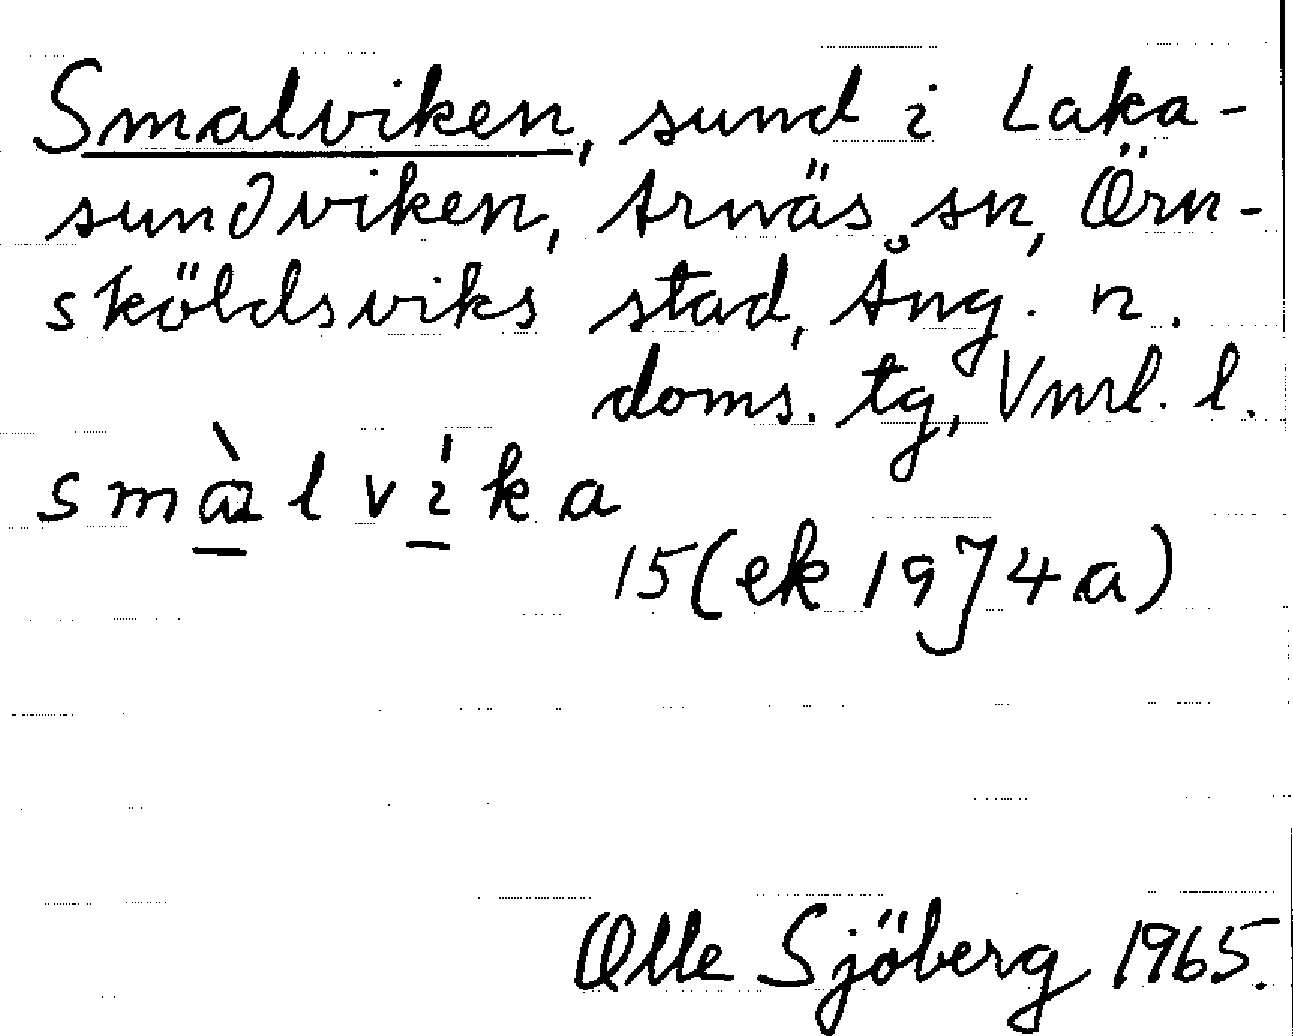 Smalviken, sund i Laka-
sundviken, Arnäs sn, Örn-
sköldsviks stad, Ång. n.
doms. tg, Vnrl. l.
smàlvíka
15(ek 1974a)
Olle Sjöberg 1965.